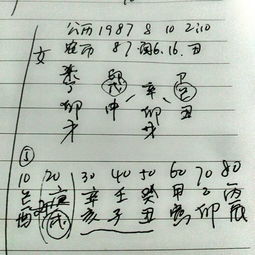 公历1987 8 10 2:10
农历 87 闰6.16.丑
女
丁 戊 辛 己
卯 申 卯 丑
①
10 20 30 40 50 60 70 80
己 庚 辛 壬 癸 甲 乙 丙
酉 戌 亥 子 丑 寅 卯 辰